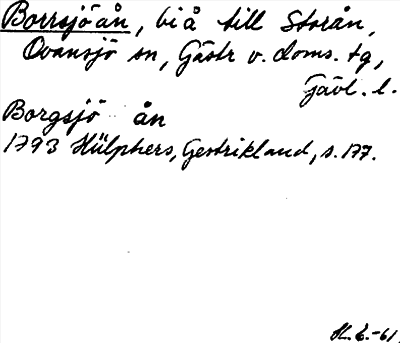 Borrsjöån, biå till Storån,
Ovansjö sn, Gästr v. doms. tg,
Gävl. l.
Borgsjö ån
1793 Hülphers, Gestrikland, s. 177.
-61.